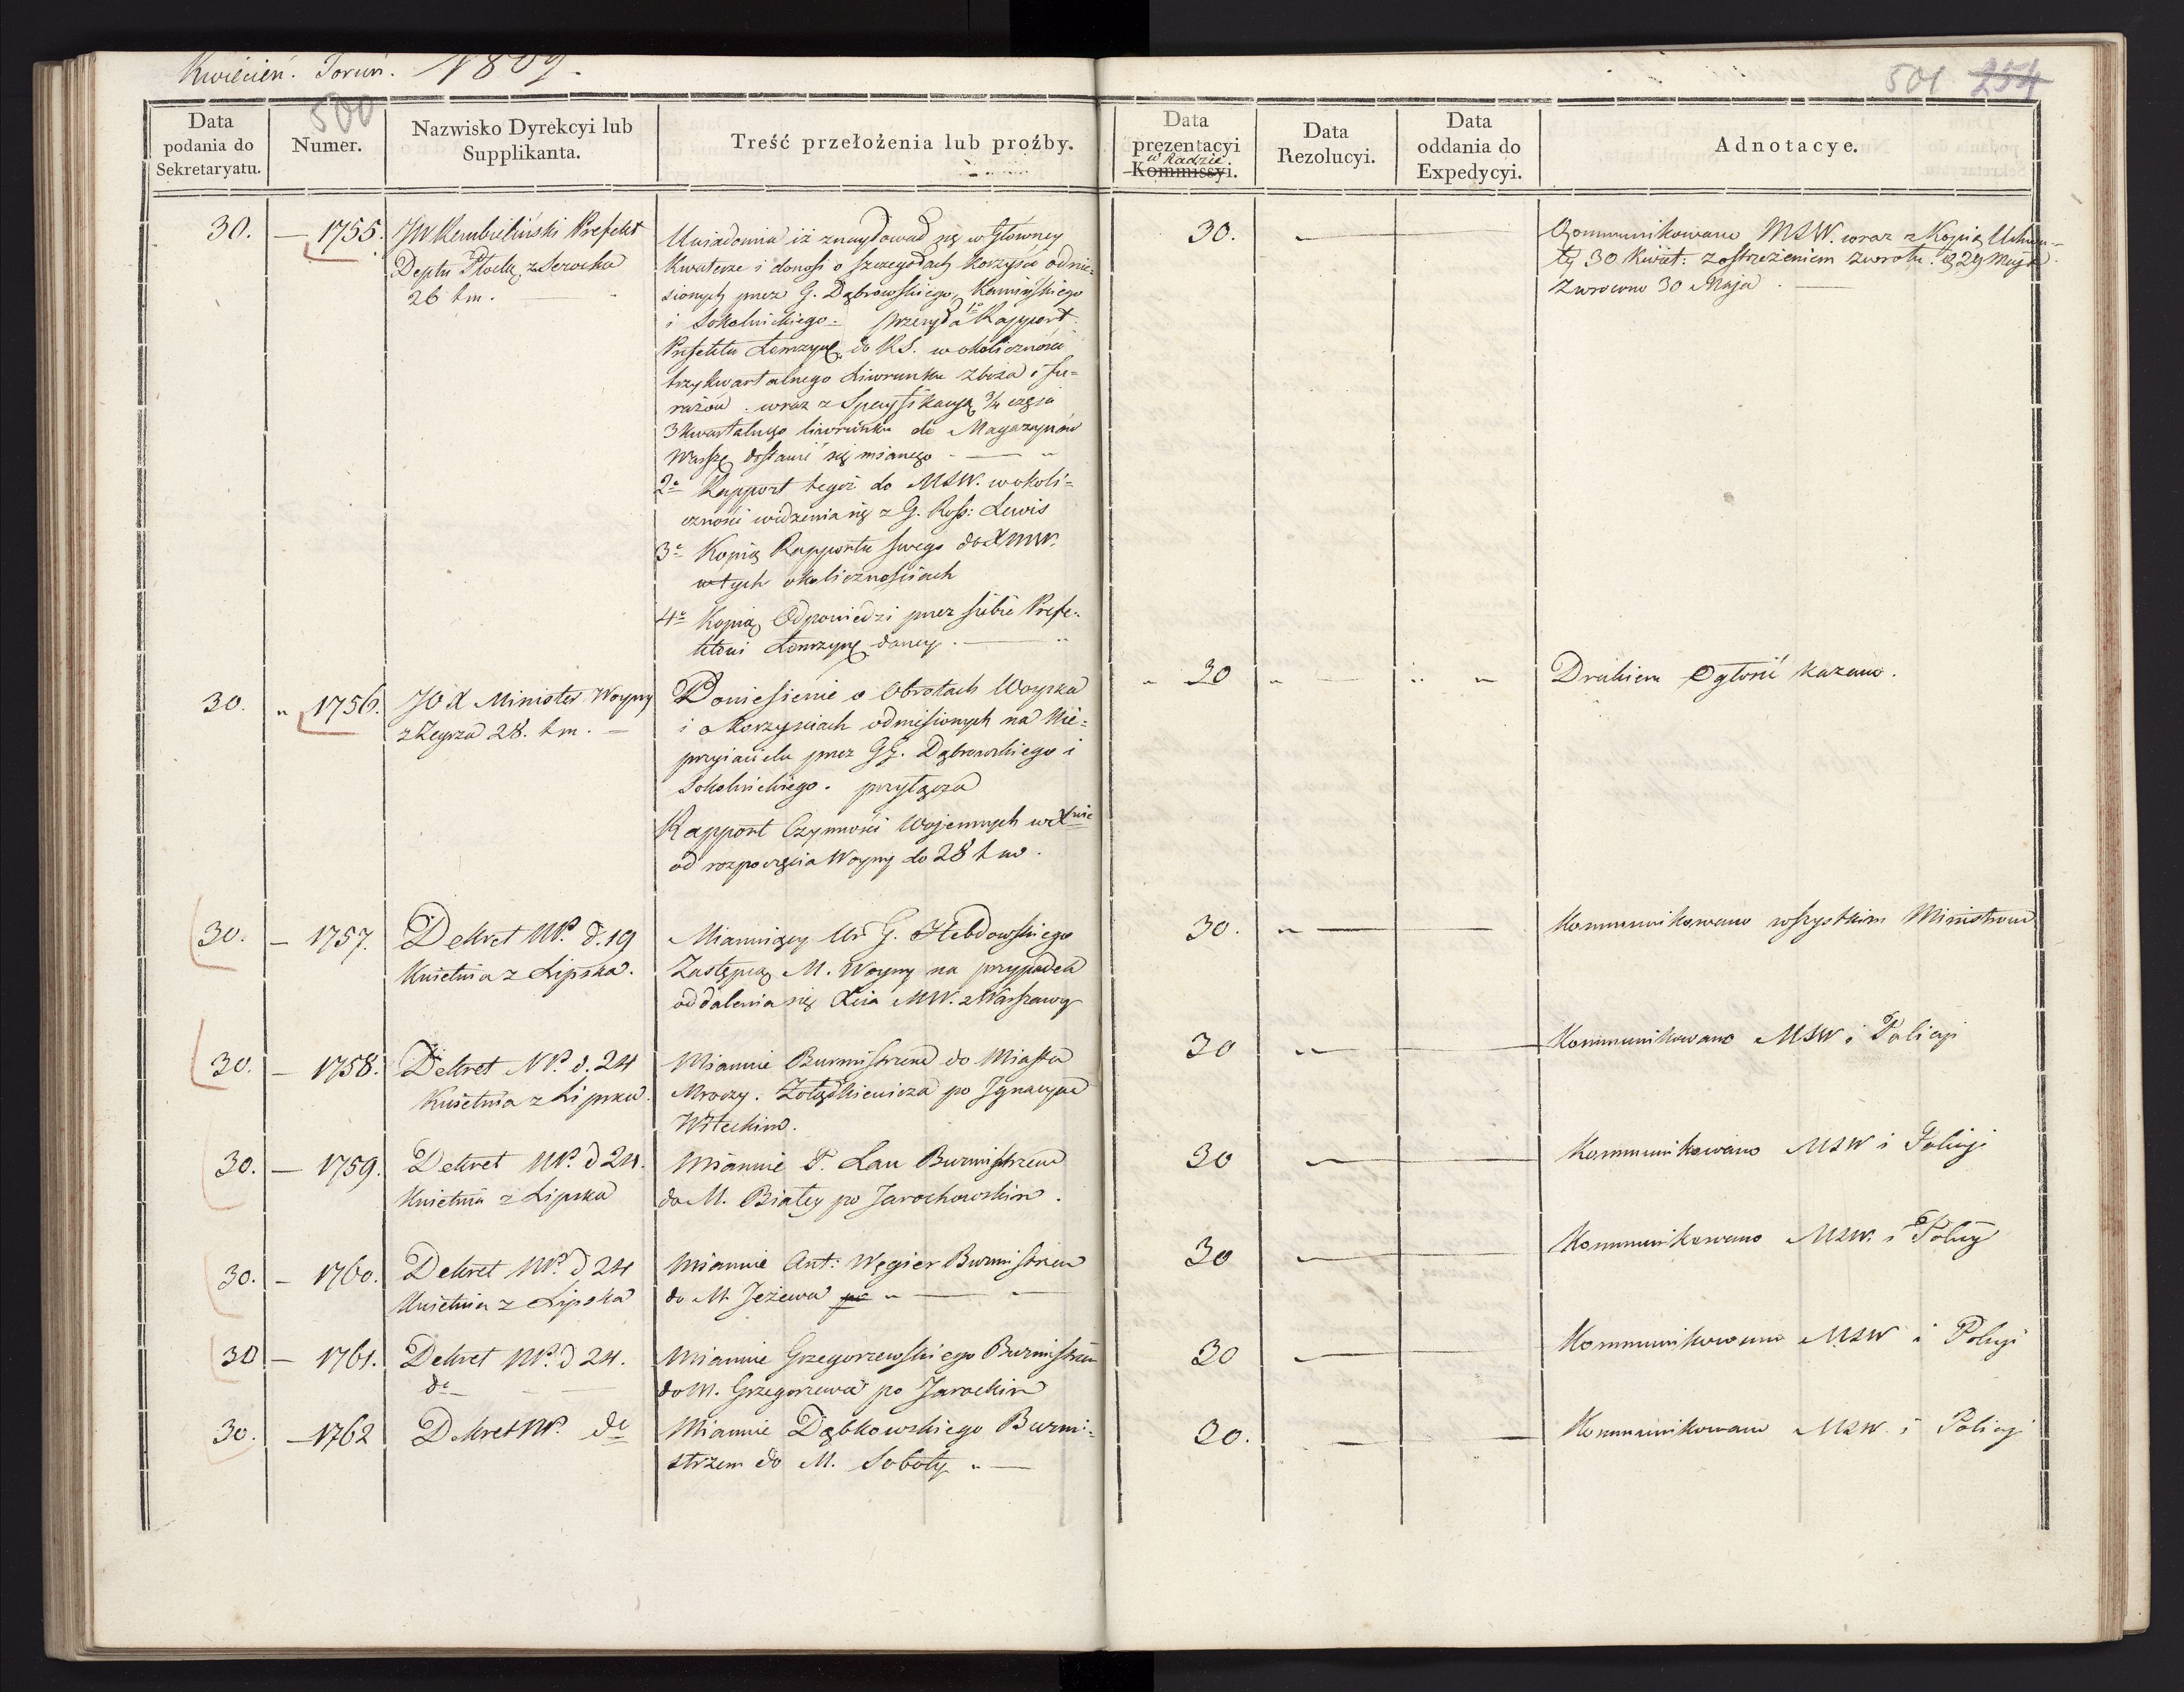 Kwiecień. Toruń. 1809.
500
501 254
Data podania do Sekretaryatu.
Numer.
Nazwisko Dyrekcyi lub Supplikanta.
Treść przełożenia lub proźby.
Data prezentacyi w Radzie Kommissyi.
Data Rezolucyi.
Data oddania do Expedycyi.
Adnotacye.
30. — 1755. JW Rembieliński Prefekt
Deptu Płock. z Serocka
26 t. m.
Uwiadomia iż znaydował się w Główney
Kwaterze i donosi o szczegołach korzyści odnie-
sionych przez G. Dąbrowskiego, Kamińskiego
i Sokolnickiego. przesyła 1o Rapport
Prefekta Łomżyń. do RS. w okoliczności
trzykwartalnego Liwerunku zboża i fu-
rażów. wraz z Specyfikacyą 3/4 części
3 kwartalnego liwerunku do Magazynów
Warsz. dostawić się mianego
2o Rapport tegoż do MSW. w okoli-
czności widzenia się z G. Ross: Lewis
3o Kopią Rapportu swego do XMW.
w tych okolicznościach
4o Kopią Odpowiedzi przez siebie Prefe-
ktowi Łomżyń. daney.
30.
Kommunikowano MSW. wraz z Kopią Uchwa-
ły 30 Kwiet: z ostrzeżeniem zwrotu. 29 Maja
Zwrócono 30 Maja.
30. " 1756. JO X Minister Woyny
z Zegrza 28. t. m. —
Doniesienie o Obrotach Woyska
i o Korzyściach odniesionych na Nie-
przyiacielu przez GG. Dąbrowskiego i
Sokolnickiego. przyłącza
Rapport Czynności Wojennych w Xtwie
od rozpoczęcia Woyny do 28 t. m.
30
Drukiem Ogłosić kazano.
30. — 1757. Dekret NP. d. 19
Kwietnia z Lipska.
Mianuiący Ur G. Hebdowskiego
Zastępcą M. Woyny na przypadek
oddalenia się Xcia MW. z Warszawy
30.
Kommunikowano wszystkim Ministrom
30. — 1758. Dekret NP. d. 24
Kwietnia z Lipska.
Mianuie Burmistrzem do Miasta
Mroczy. Żołądkiewicza po Ignacym
Witeckim.
30
Kommunikowano MSW i Policyi
30. — 1759. Dekret NP. d 24.
Kwietnia z Lipska
Mianuie P. Lau Burmistrzem
do M. Białey po Jarochowskim.
30
Kommunikowano MSW i Policyi
30. — 1760. Dekret NP. d 24
Kwietnia z Lipska
Mianuie Ant: Węgier Burmistrzem
do M. Jeżewa po "
30
Kommunikowano MSW. i Policyi
30 — 1761. Dekret NP. d 24.
do —
Mianuie Grzegorzewskiego Burmistrzem
do M. Grzegorzewa po Jarockim
30
Kommunikowano MSW i Policyi
30. — 1762 Dekret NP. do
Mianuie Dąbkowskiego Burmi-
strzem do M. Soboty "
30.
Kommunikowano MSW. i Policyi